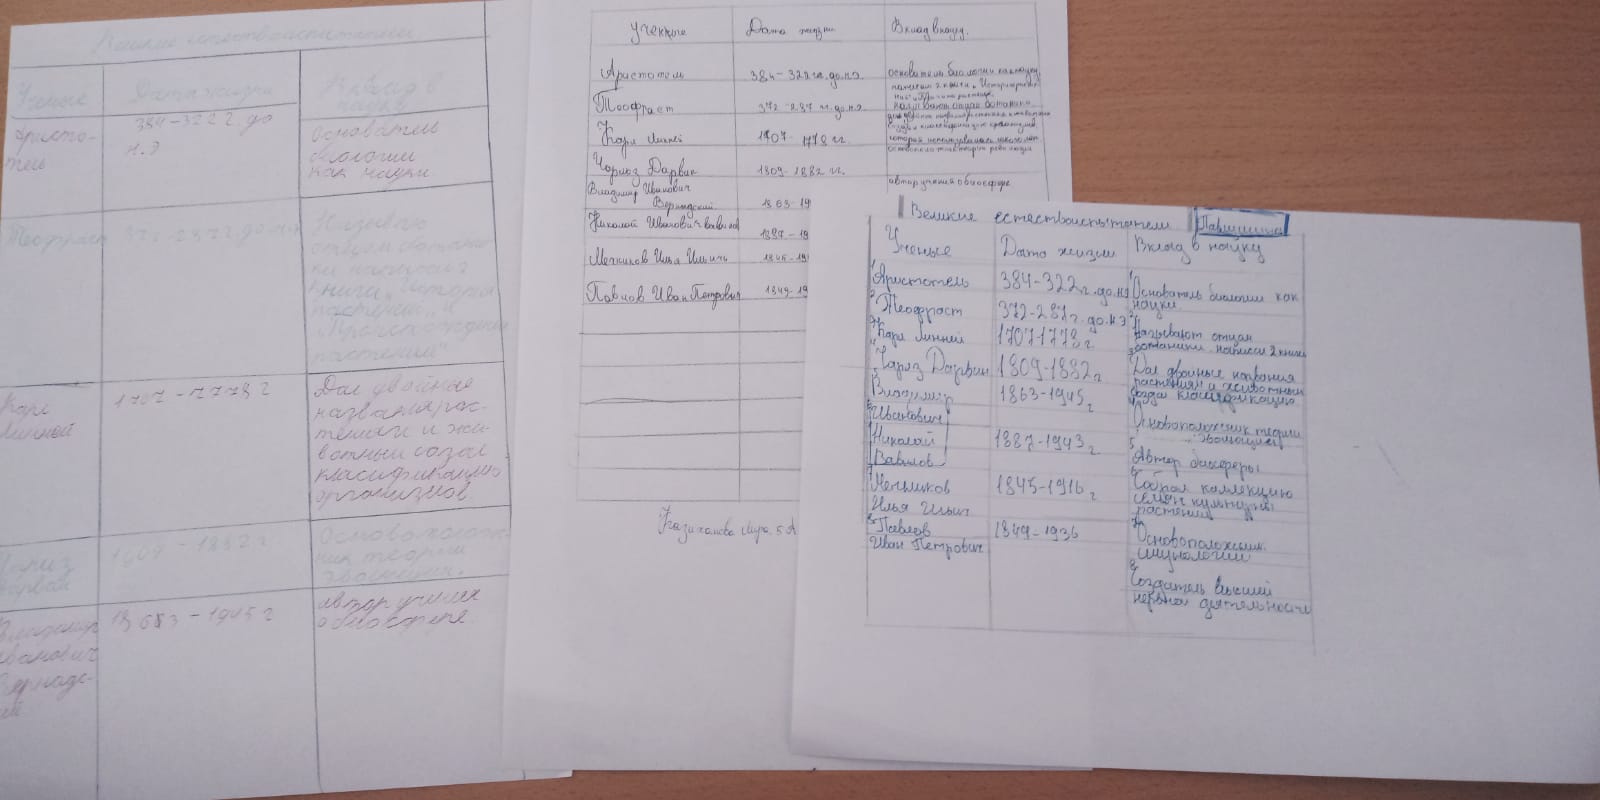 Великие естествоиспытатели
Ученые
Дата жизни
Вклад в
науку
Аристо-
тель
384-322 г. до
н.э
Основатель
биологии
как науки.
Теофраст
372-287 г. до н.э
Называю
отцом ботани-
ки написал 2
книги „История
растений" и
растений"
Карл
Линней
1707-1778 г
Дал двойные
названия рас-
тениям и жи-
вотным создал
класификацию
организмов
Чарлз
Дарвин
1809-1882 г
Основополож-
ник теории
эволюции.
Владимир
Иванович
Вернадс-
кий
1863-1945 г
автор учения
о биосфере.
ученные
Дата жизни
Вклад в науку.
Аристотель
384-322 гг. до н.э.
основатель биологии как науки,
Теофраст
372-287 гг. до н.э.
называют отцом ботаники
Карл Линней
1707-1778 гг.
Чарлз Дарвин
1809-1882 гг.
Владимир Иванович
Вернадский
1863-19
автор учения о биосфере
Николай Иванович Вавилов
1887-19
Мечников Илья Ильич
1845-19
Павлов Иван Петрович
1849-19
5 А
Великие естествоиспытатели
Ученые
Дата жизни
Вклад в науку
1 Аристотель
384-322 г. до н.э
1 Основатель биологии как
науки.
2 Теофраст
372-287 г. до н.э
2 Называют отцом
ботаники. написал 2 книги
3 Карл Линней
1707-1778 г.
3 Дал двойные названия
растениям и животным
создал классификацию
4 Чарлз Дарвин
1809-1882 г
4 Основоположник теории
эволюции
5 Владимир
Иванович
1863-1945 г
5 Автор биосферы
6 Николай
Вавилов
1887-1943 г
6 Собрал коллекцию
семян культурных
растений
7 Мечников
Илья Ильич
1845-1916 г
7 Основоположник
имунологии
8 Павлов
Иван Петрович
1849-1936
8 Создатель высшей
нервной деятельности